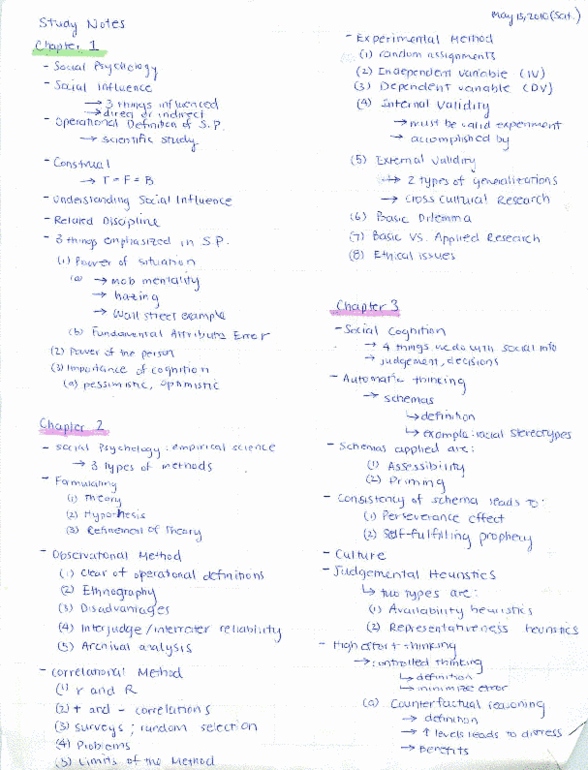 May 15, 2010 (Sat.)
Study Notes
Chapter 1
- Social Psychology
- Social Influence
→ 3 things influenced
→ direct or indirect
- Operational Definition of S.P.
→ scientific study
- Construal
→ T = F = B
- Understanding Social Influence
- Related Discipline
- 3 things emphasized in S.P.
(1) Power of situation
(a) → mob mentality
→ hazing
→ Wall street example
(b) Fundamental Attribute Error
(2) Power of the person
(3) Importance of cognition
(a) pessimistic, optimistic
Chapter 2
- Social Psychology : empirical science
→ 3 types of methods
- Formulating
(1) Theory
(2) Hypothesis
(3) Refinement of Theory
- Observational Method
(1) Clear of operational definitions
(2) Ethnography
(3) Disadvantages
(4) Interjudge/interrater reliability
(5) Archival analysis
- Correlational Method
(1) r and R
(2) + and - correlations
(3) surveys ; random selection
(4) Problems
(5) Limits of the Method
- Experimental Method
(1) random assignments
(2) Independent variable (IV)
(3) Dependent variable (DV)
(4) Internal Validity
→ must be valid experiment
→ accomplished by
(5) External Validity
→ 2 types of generalizations
→ Cross Cultural Research
(6) Basic Dilemma
(7) Basic VS. Applied Research
(8) Ethical issues
Chapter 3
- Social Cognition
→ 4 things we do with social info
→ judgement, decisions
- Automatic thinking
→ schemas
↳ definition
↳ example : racial stereotypes
- Schemas applied are :
(1) Assessibility
(2) Priming
- Consistency of schema leads to :
(1) Perseverance effect
(2) Self-fulfilling prophecy
- Culture
- Judgemental Heuristics
↳ two types are :
(1) Availability heuristics
(2) Representativeness heuristics
- High effort thinking
→ : controlled thinking
↳ definition
↳ minimize error
(a) Counterfactual reasoning
→ definition
→ ↑ levels leads to distress
→ Benefits